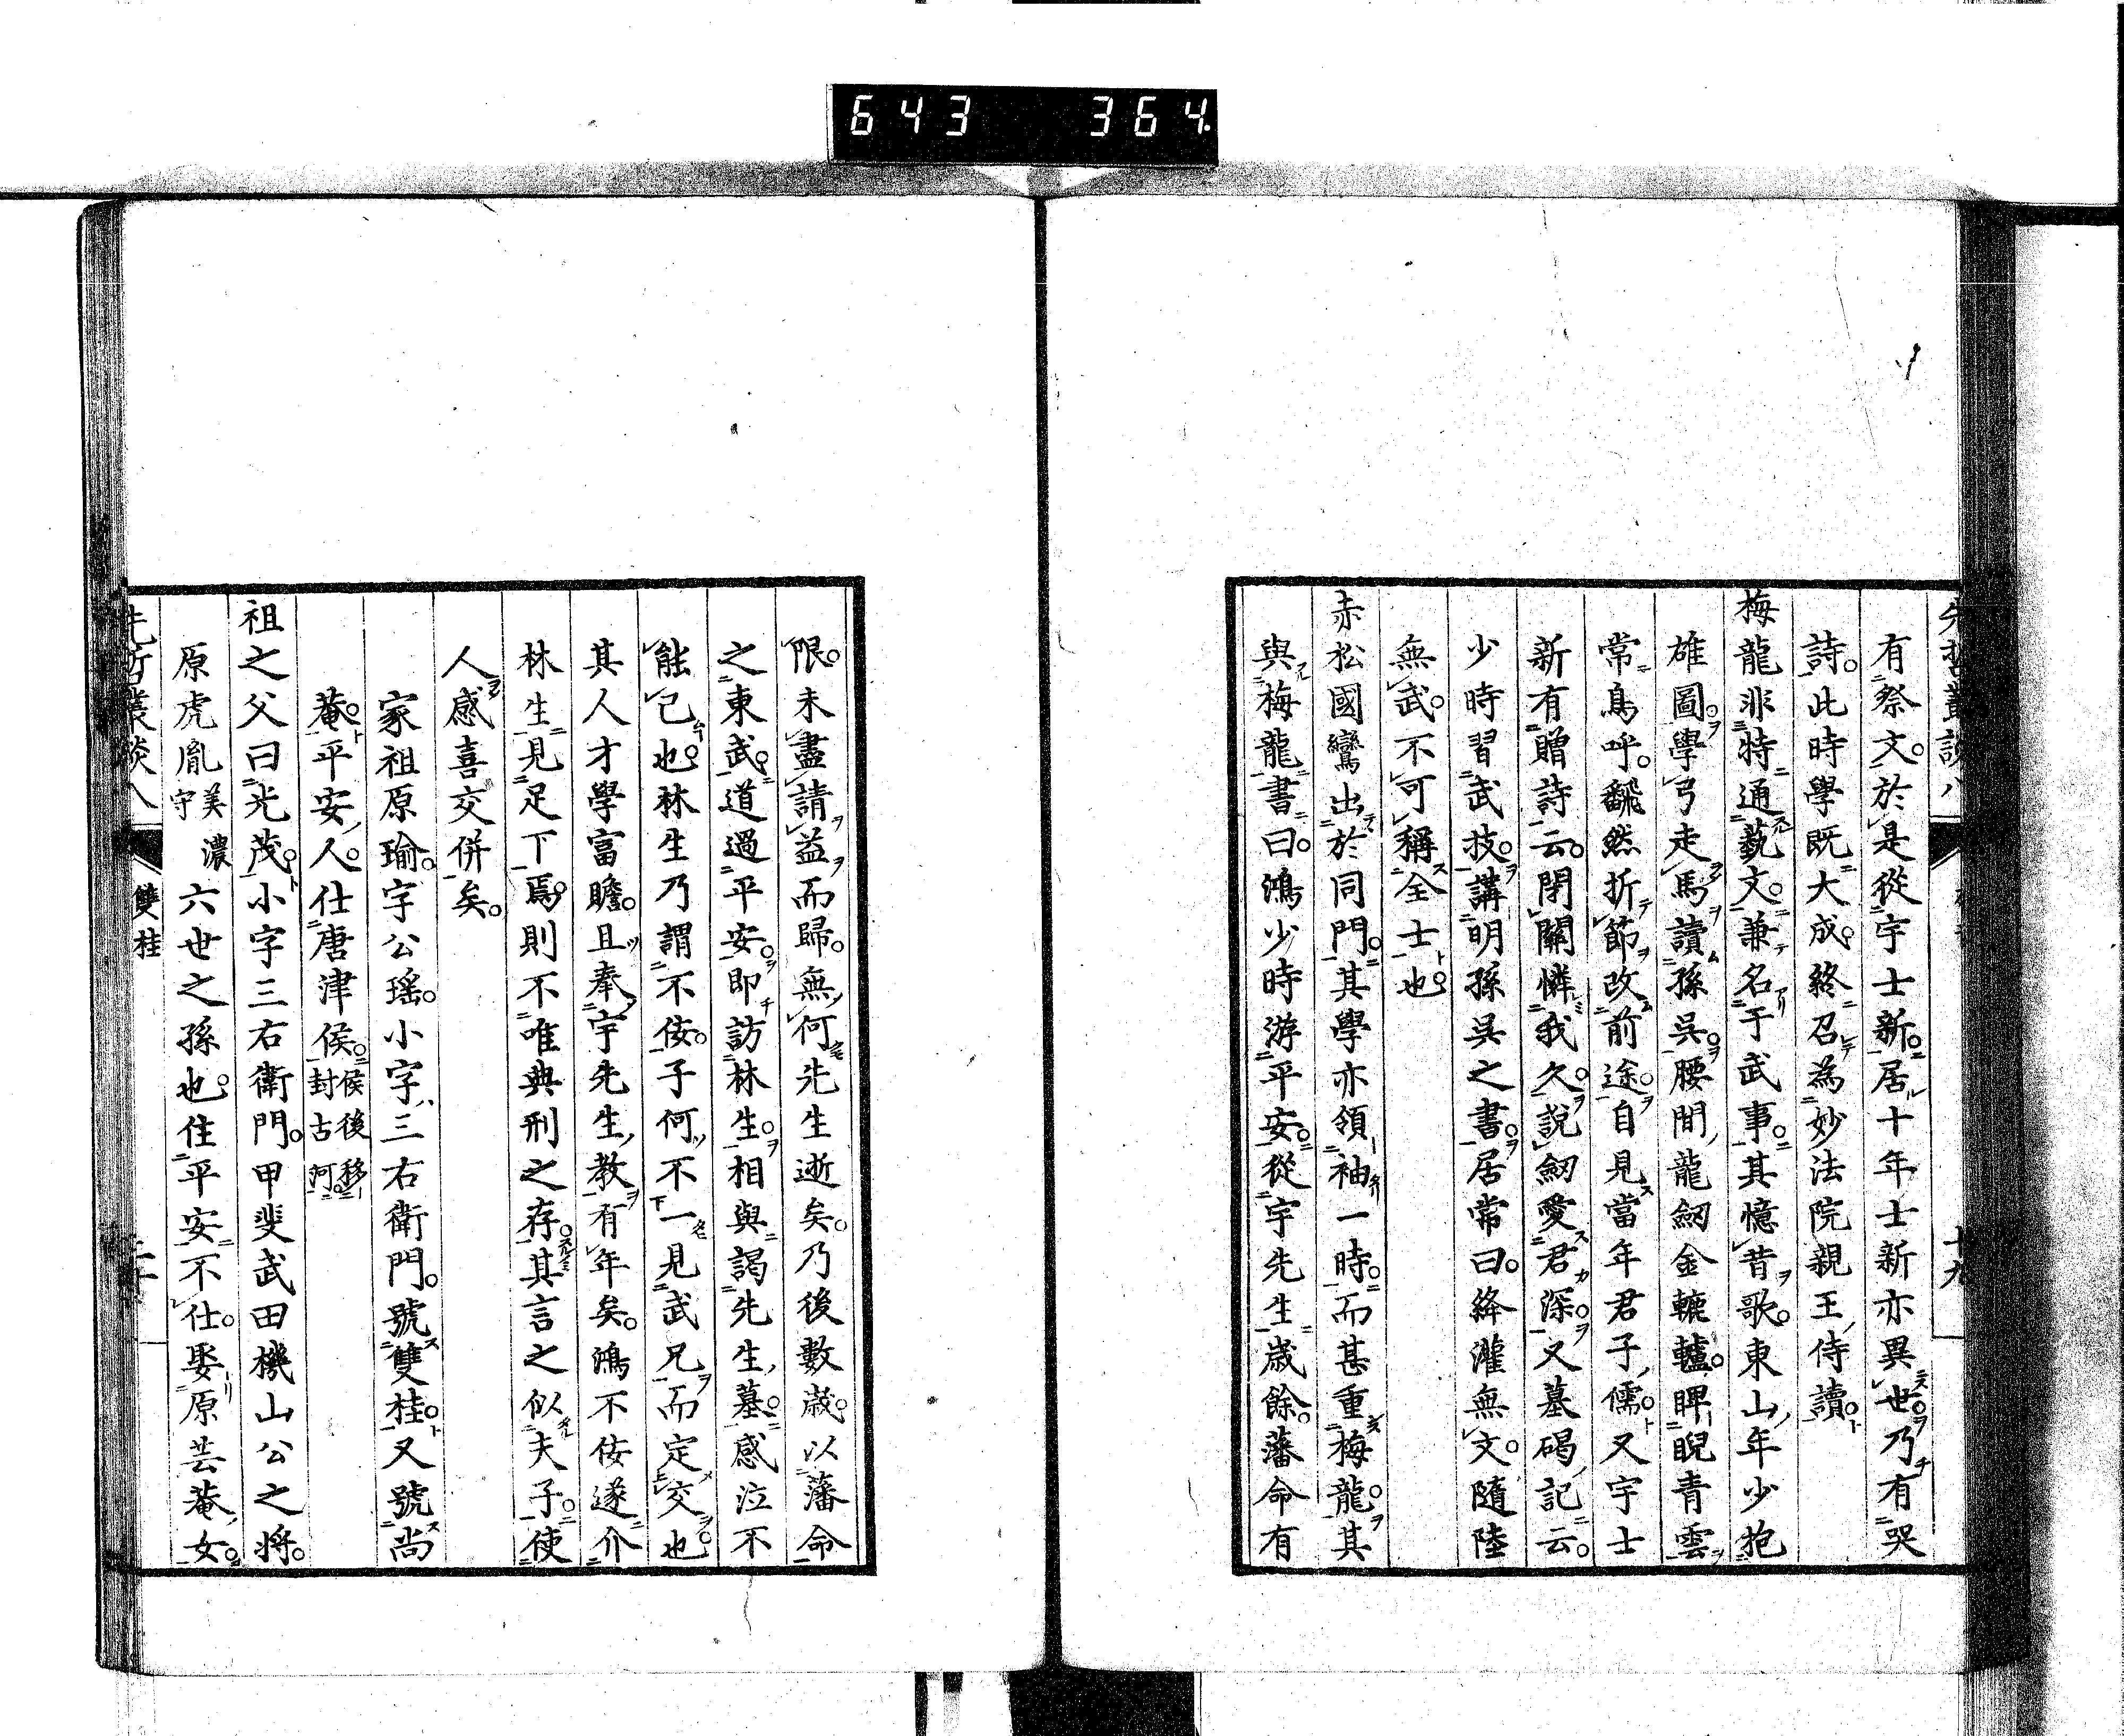 643 364
先哲叢談八 十九
有祭文於是從宇士新居十年士新亦異世乃有哭
詩此時學既大成終召為妙法院親王侍讀
梅龍非特通藝文兼名于武事其憶昔歌東山年少抱
雄圖學弓走馬讀孫吳腰間龍劒金轆轤睥睨青雲
常鳥呼翻然折節改前途自見當年君子儒又宇士
新有贈詩云閉關憐我久說劒愛君深又墓碣記云
少時習武技講明孫吳之書居常曰絳灌無文隨陸
無武不可稱全士也
赤松國鸞出於同門其學亦領袖一時而甚重梅龍其
與梅龍書曰鴻少時游平安從宇先生歲餘藩命有
限未盡請益而歸無何先生逝矣乃後數歲以藩命
之東武道過平安即訪林生相與謁先生墓感泣不
能已也林生乃謂不佞子何不一見武兄而定交也
其人才學富贍且奉宇先生教有年矣鴻不佞遂介
林生見足下焉則不唯典刑之存其言之似夫子使
人感喜交併矣
家祖原瑜字公瑤小字三右衛門號雙桂又號尚
菴平安人仕唐津侯侯後移封古河
祖之父曰光茂小字三右衛門甲斐武田機山公之將
原虎胤美濃守六世之孫也住平安不仕娶原芸菴女
先哲叢談八 雙桂 二十